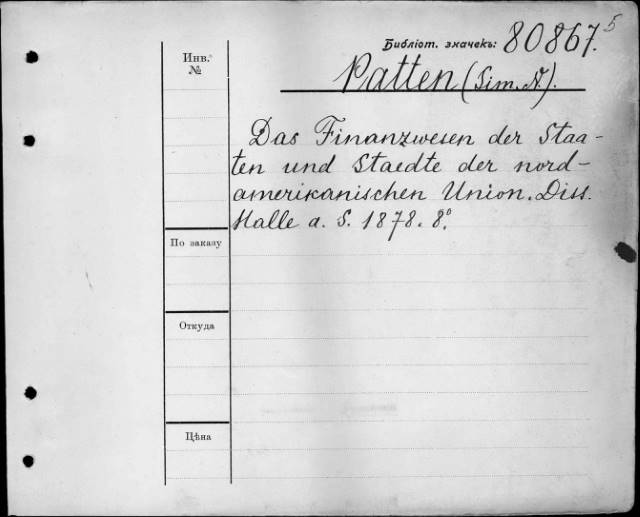 Библіот. значекъ: 80867.5
Patten (Sim. N.).
Инв.
№
Das Finanzwesen der Staa-
ten und Staedte der nord-
amerikanischen Union. Diss.
Halle a. S. 1878. 8°.
По заказу
Откуда
Цѣна